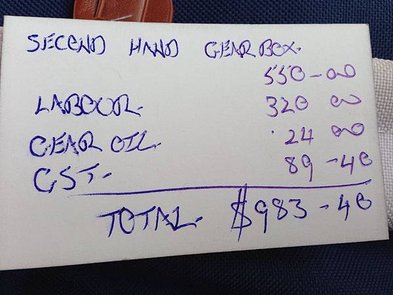 SECOND HAND GEARBOX.
550-00
LABOUR. 320 00
GEAR OIL. 24 00
GST. 89-40
TOTAL. $983-40